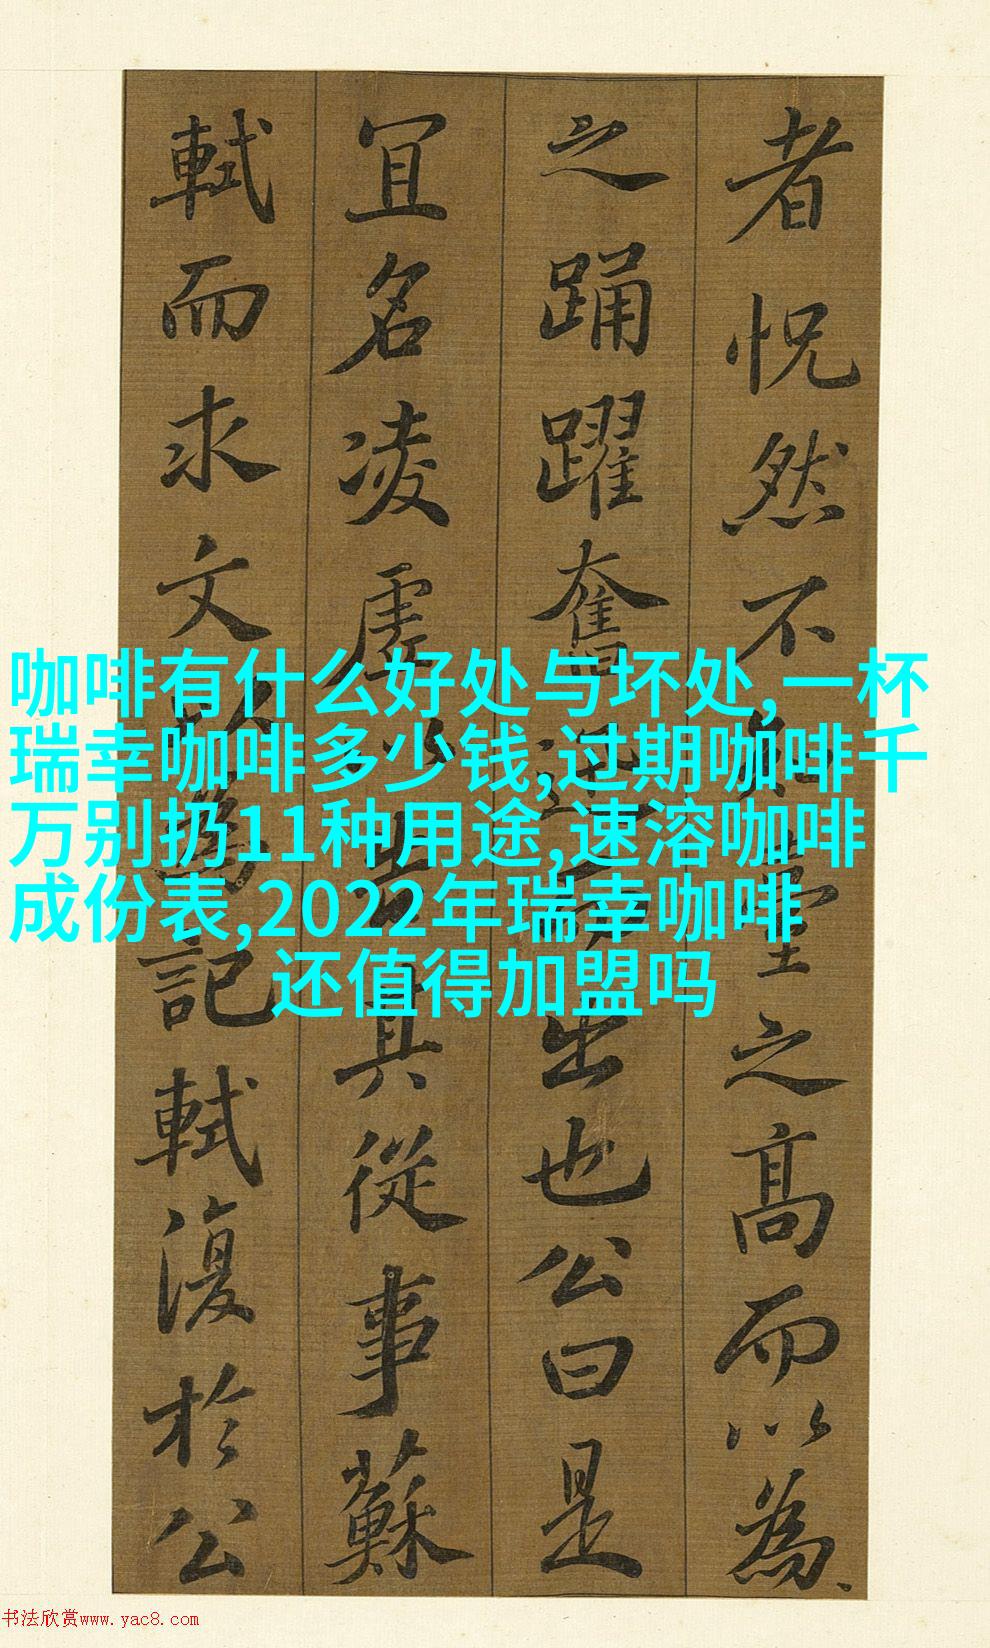 者怳然不知臺之高而以為
之踊躍奮迅而出也公曰是
宜名凌虛以告其從事蘇
軾而求文以為記軾復於公
咖啡有什么好处与坏处,一杯
瑞幸咖啡多少钱,过期咖啡千
万别扔11种用途,速溶咖啡
成份表,2022年瑞幸咖啡
还值得加盟吗
书法欣赏www.yac8.com